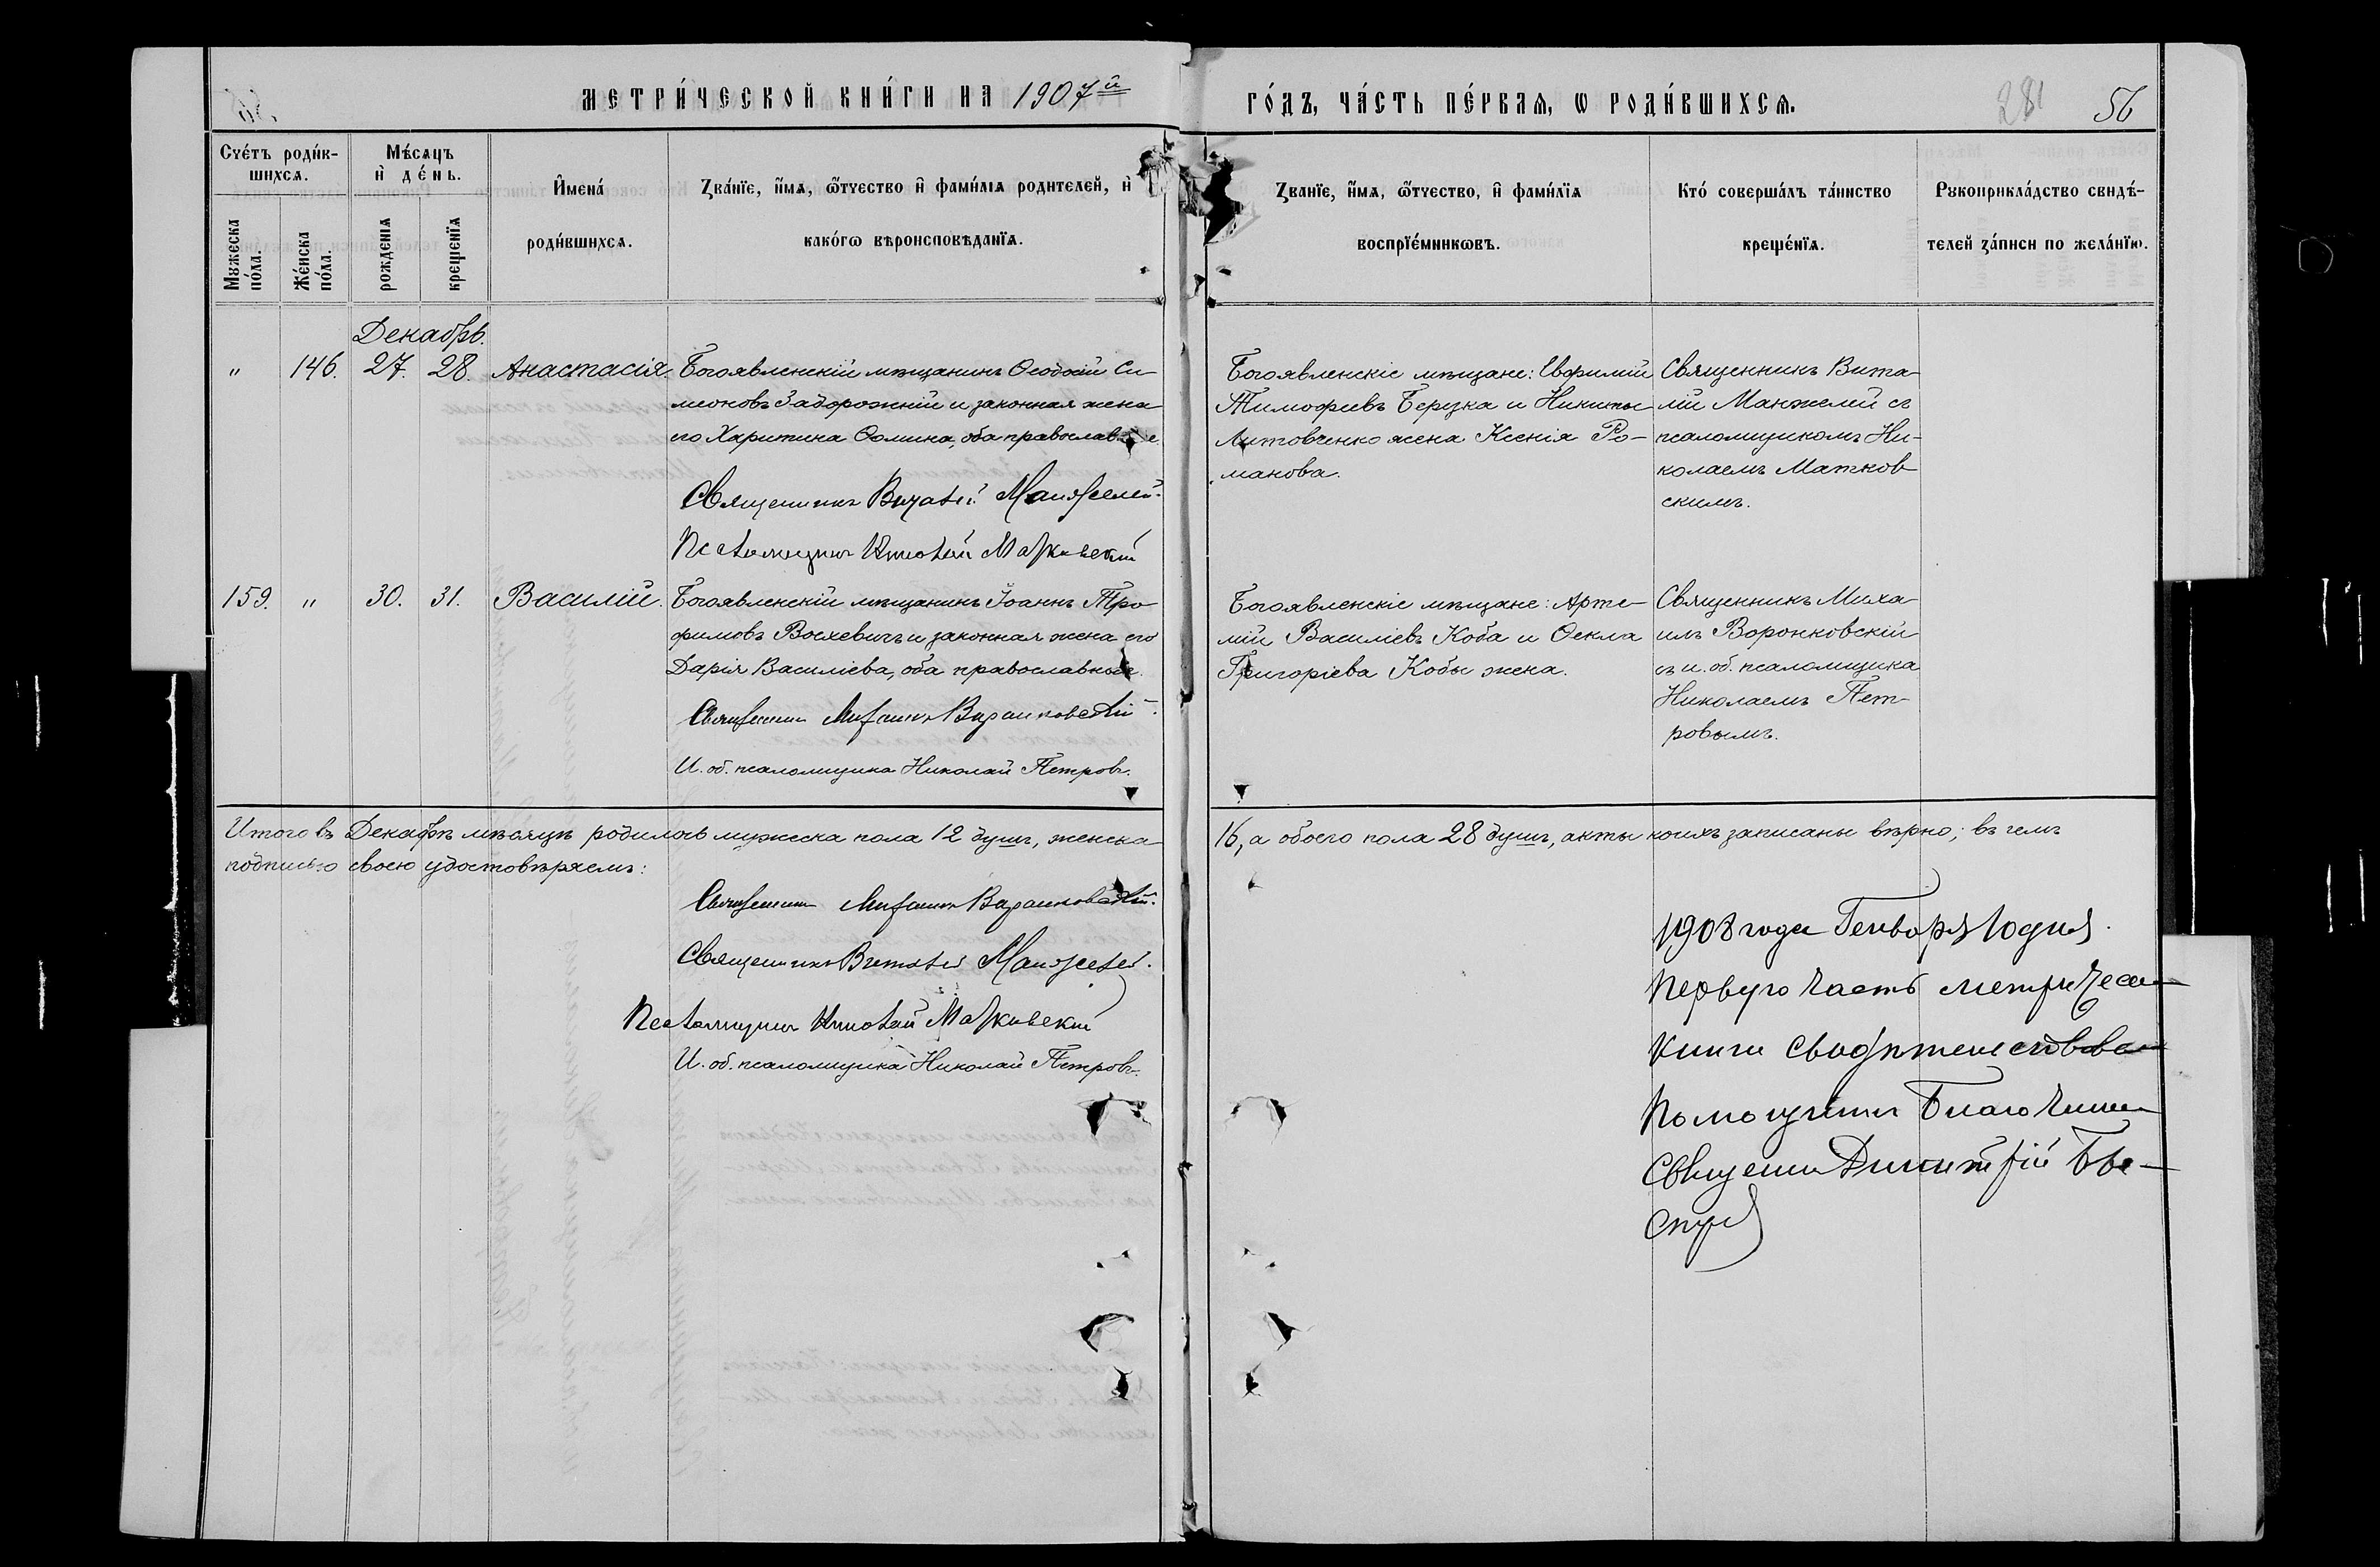 МЕТРИ́ЧЕСКОЙ КНИ́ГИ НА 1907й
ГО́ДЪ, ЧА́СТЬ ПЕ́РВАѦ, Ѡ РОДИ́ВШИХСѦ.
281 56
Сче́тъ роди́в-
шихсѧ.
Мѣ́сѧцъ
и҆ де́нь.
И҆мена́
роди́вшихсѧ.
Зва́нїе, и҆́мѧ, ѻ҆́тчество и҆ фами́лїѧ родителей, и҆
како́гѡ вѣроисповѣданїѧ.
Званїе, и҆́мѧ, ѻ҆́тчество, и҆ фами́лїѧ
воспрїе́мникѡвъ.
Кто́ соверша́лъ та́инство
креще́нїѧ.
Рꙋкоприкла́дство свидѣ́-
телей за́писи по жела́нїю.
Мꙋжеска
по́ла.
Же́нска
по́ла.
рожденїѧ
крещенїѧ
Декабрь.
" 146. 27. 28. Анастасія.
Богоявленскій мѣщанинъ Ѳеодосій Си-
меоновъ Задорожній и законная жена
его Харитина Ѳомина, оба православные
Священникъ Виталій Манжелей.
Псаломщикъ Николай Матковский
Богоявленскіе мѣщане: Евфимий
Тимофіевъ Берузка и Никиты
Литовченко жена Ксенія Ро-
манова.
Священникъ Вита-
лій Манжелей съ
псаломщикомъ Ни-
колаемъ Матков-
скимъ.
159. " 30. 31. Василій.
Богоявленскій мѣщанинъ Іоаннъ Тро-
фимовъ Восхевичъ и законная жена его
Дарія Василіева, оба православные.
Священникъ Михаилъ Воронковскій.
И. об. псаломщика Николай Петровъ.
Богоявленскіе мѣщане: Арте-
мій Василіевъ Коба и Ѳекла
Григоріева Кобы жена.
Священникъ Миха-
илъ Воронковскій
съ и. об. псаломщика
Николаемъ Пет-
ровымъ.
Итого въ Декабрѣ мѣсяцѣ родилось мужеска пола 12 душъ, женска
16, а обоего пола 28 душъ, акты коихъ записаны вѣрно; въ чемъ
подписью своею удостовѣряемъ:
Священникъ Михаилъ Воронковскій.
Священникъ Виталій Манжелей.
Псаломщикъ Николай Матковский
И. об. псаломщика Николай Петровъ.
1908 года Генваря 10 дня.
Первую часть метрическ
книги свидѣтельствова
Помощникъ Благочинн
Священн Димитрій